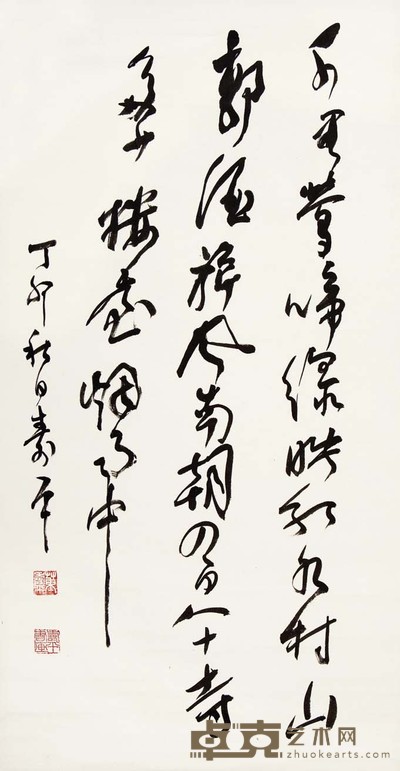 千里鶯啼綠映紅水村山
郭酒旗風南朝四百八十寺
多少樓臺烟雨中
丁卯秋日壽平
卓克艺术网
zhuokearts.com